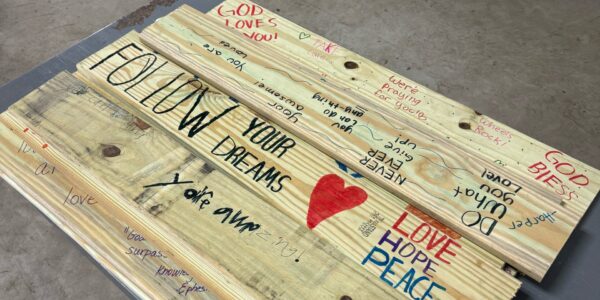 GOD
LOVES
YOU!
TAKE
you are
Loved
We're
praying
for you!
your
awesome!
you
can do
any-thing
Wheels
Rock!
GOD
BLESS
NEVER
EVER
Give
up!
DO
what
you
LOVE!
-Harper
FOLLOW
YOUR
DREAMS
LOVE
HOPE
PEACE
love
"God
surpas-
Know
Ephes.